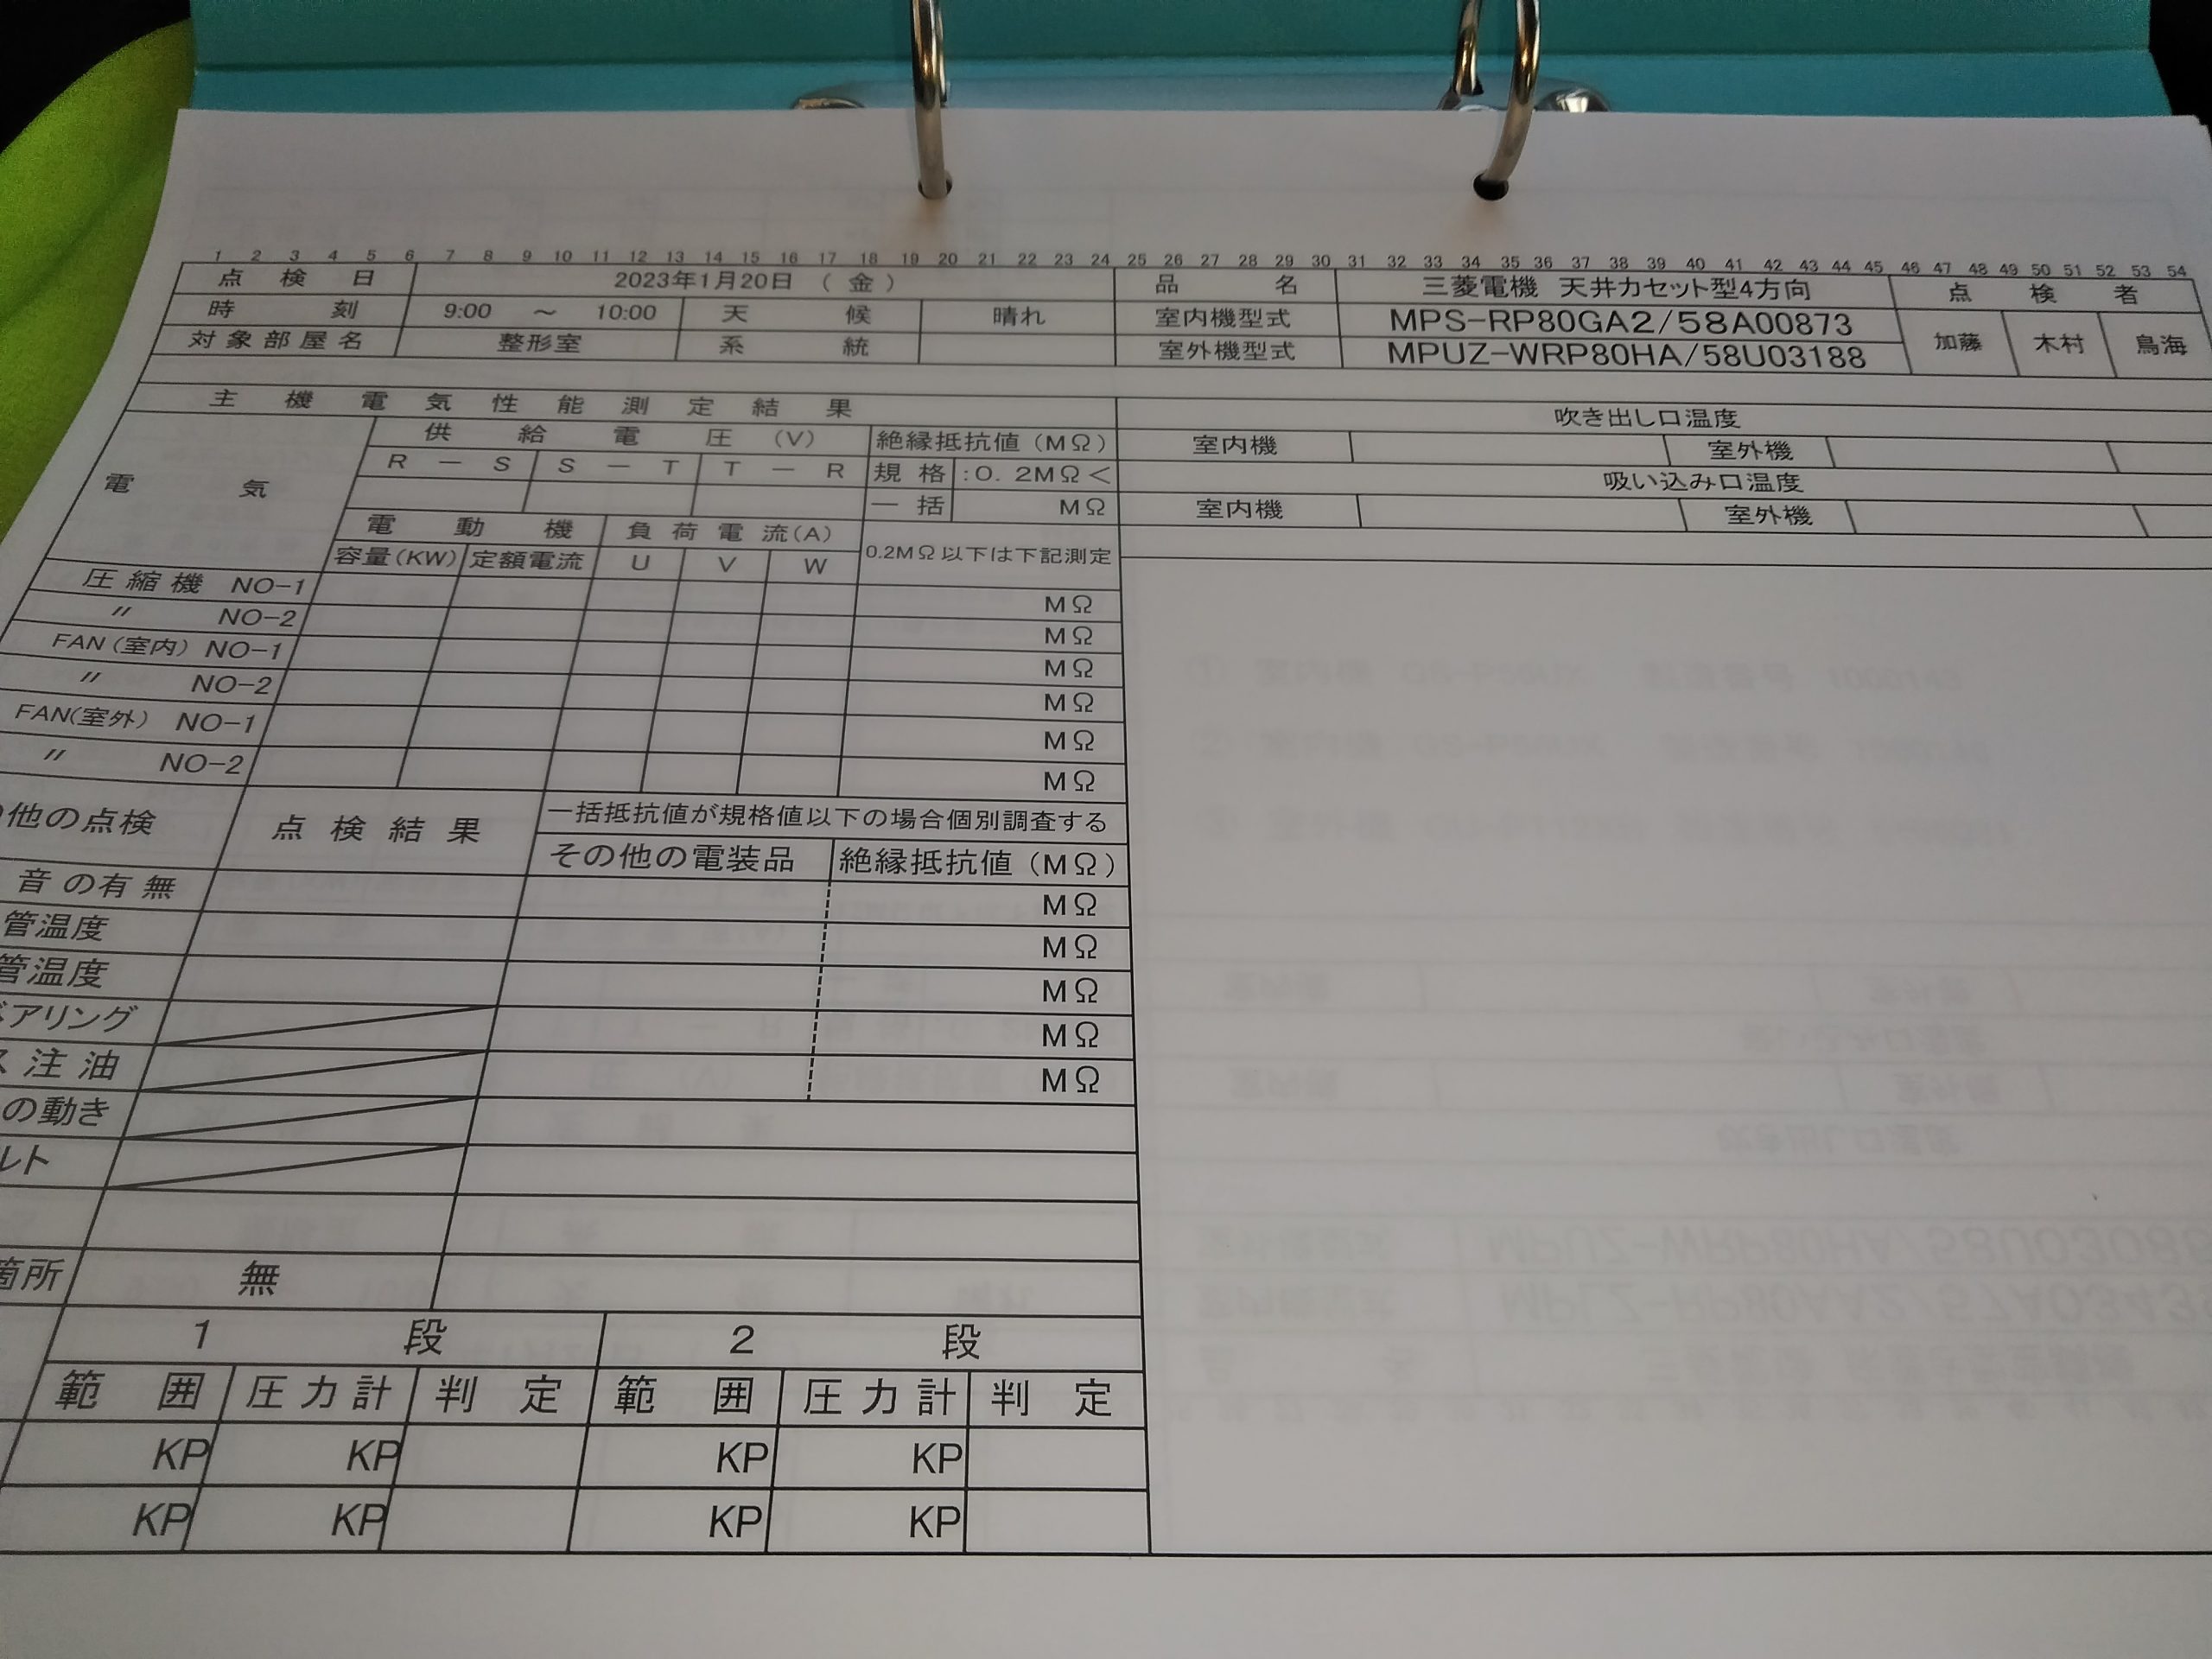 1 2 3 4 5 6 7 8 9 10 11 12 13 14 15 16 17 18 19 20 21 22 23 24 25 26 27 28 29 30 31 32 33 34 35 36 37 38 39 40 41 42 43 44 45 46 47 48 49 50 51 52 53 54
点検日 2023年1月20日（金） 品名 三菱電機 天井カセット型4方向 点検者
時刻 9:00 ～ 10:00 天候 晴れ 室内機型式 MPS-RP80GA2/58A00873 加藤 木村 鳥海
対象部屋名 整形室 系統 室外機型式 MPUZ-WRP80HA/58U03188
主機電気性能測定結果 吹き出し口温度
電気 供給電圧（V） 絶縁抵抗値（MΩ） 室内機 室外機
R－S S－T T－R 規格 :0.2MΩ＜ 吸い込み口温度
一括 MΩ 室内機 室外機
電動機 負荷電流(A) 0.2MΩ以下は下記測定
容量(KW) 定額電流 U V W
圧縮機 NO-1 MΩ
〃 NO-2 MΩ
FAN（室内）NO-1 MΩ
〃 NO-2 MΩ
FAN(室外）NO-1 MΩ
〃 NO-2 MΩ
他の点検 点検結果 一括抵抗値が規格値以下の場合個別調査する
その他の電装品 絶縁抵抗値（MΩ）
音の有無 MΩ
管温度 MΩ
管温度 MΩ
アリング MΩ
ス注油 MΩ
の動き
ルト
箇所 無
1段 2段
範囲 圧力計 判定 範囲 圧力計 判定
KP KP KP KP
KP KP KP KP